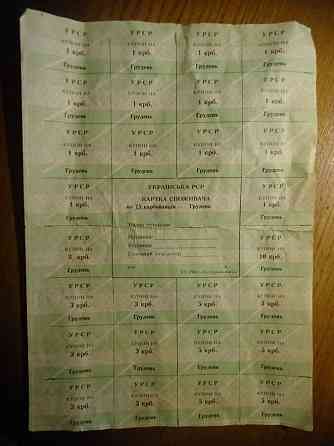 УРСР УРСР УРСР УРСР
КУПОН НА КУПОН НА КУПОН НА КУПОН НА
1 крб. 1 крб. 1 крб. 1 крб.
Грудень Грудень Грудень Грудень
УРСР УРСР УРСР УРСР
КУПОН НА КУПОН НА КУПОН НА КУПОН НА
1 крб. 1 крб. 1 крб. 1 крб.
Грудень Грудень Грудень Грудень
УРСР УРСР УРСР УРСР
КУПОН НА КУПОН НА КУПОН НА КУПОН НА
1 крб. 1 крб. 1 крб. 1 крб.
Грудень Грудень Грудень Грудень
УРСР УКРАЇНСЬКА РСР УРСР
КУПОН НА КАРТКА СПОЖИВАЧА КУПОН НА
1 крб. на 75 карбованців Грудень 1 крб.
Грудень Грудень
УРСР Прізвище УРСР
КУПОН НА Керівник КУПОН НА
крб. 10 крб.
Грудень Грудень
УРСР УРСР УРСР УРСР
КУПОН НА КУПОН НА КУПОН НА КУПОН НА
3 крб. 3 крб. 3 крб. 3 крб.
Грудень Грудень Грудень Грудень
УРСР УРСР УРСР УРСР
КУПОН НА КУПОН НА КУПОН НА КУПОН НА
3 крб. 3 крб. 5 крб. 5 крб.
Грудень Грудень Грудень Грудень
УРСР УРСР УРСР УРСР
КУПОН НА КУПОН НА КУПОН НА КУПОН НА
5 крб. 5 крб. 5 крб. 5 крб.
Грудень Грудень Грудень Грудень